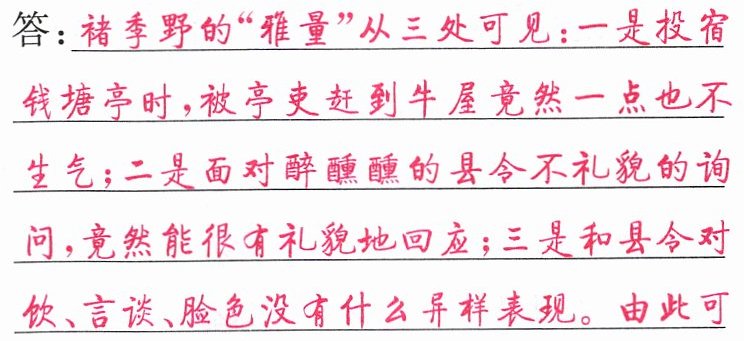 答：褚季野的“雅量”从三处可见：一是投宿
钱塘亭时，被亭吏赶到牛屋竟然一点也不
生气；二是面对醉醺醺的县令不礼貌的询
问，竟然能很有礼貌地回应；三是和县令对
饮、言谈、脸色没有什么异样表现。由此可